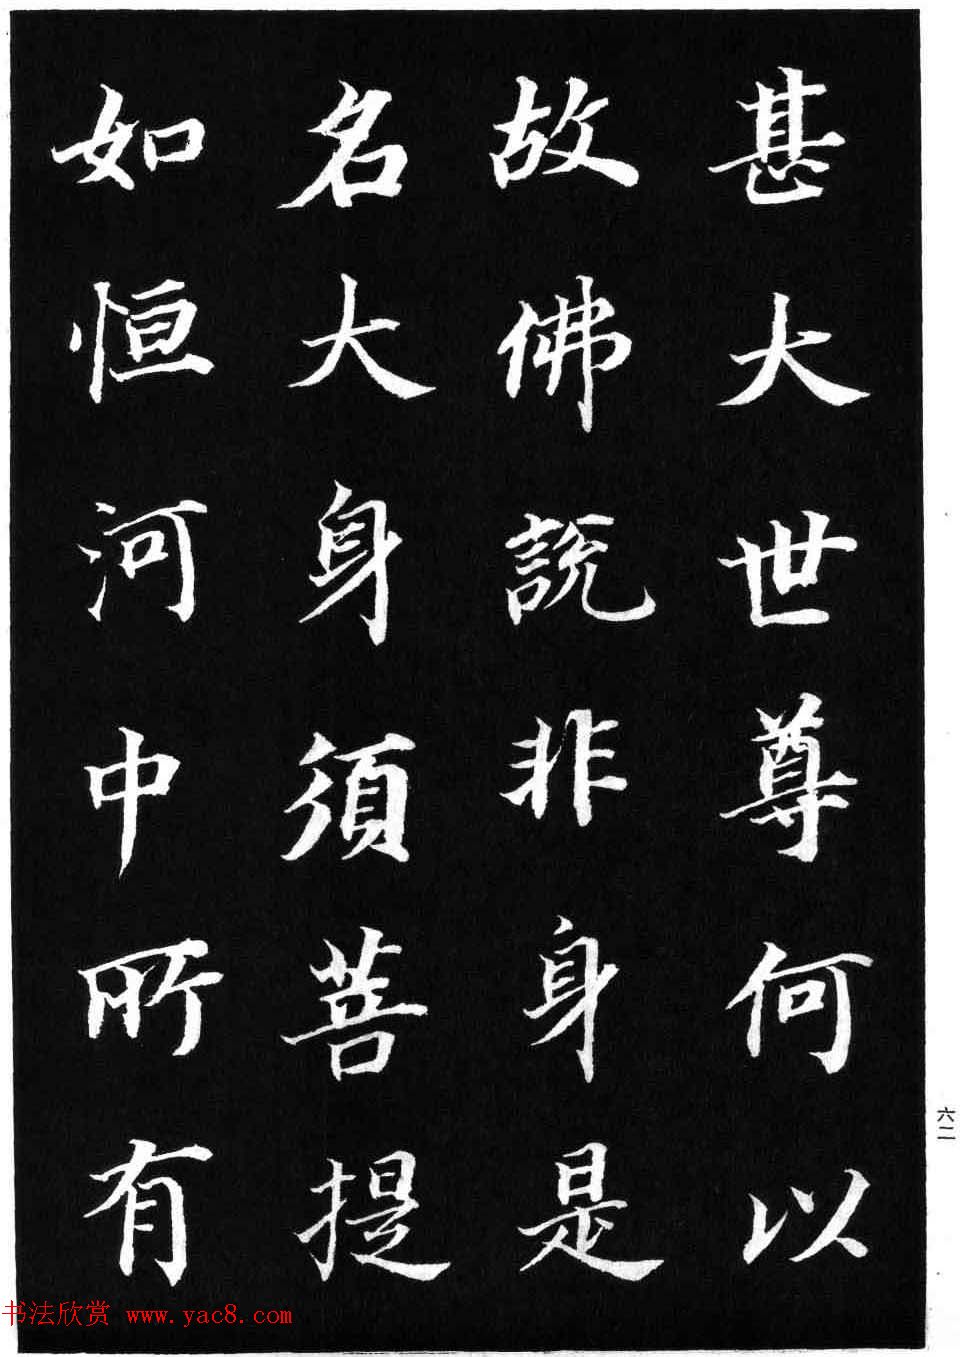 甚大世尊何以
故佛説非身是
名大身須菩提
如恒河中所有
六二
书法欣赏 www.yac8.com